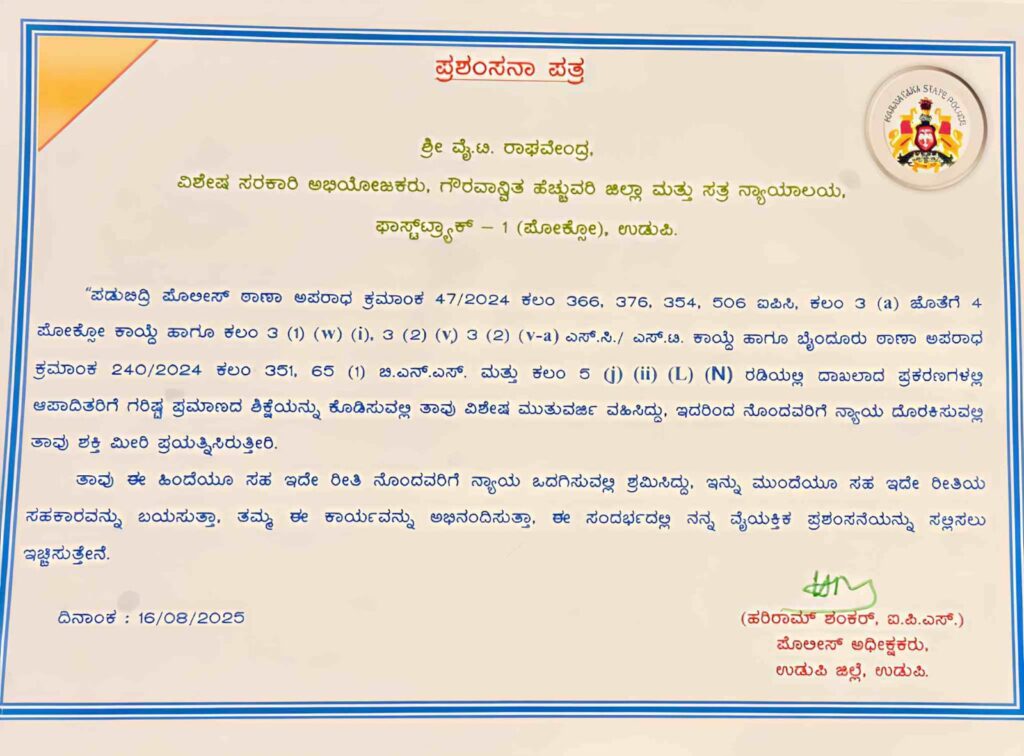 ಪ್ರಶಂಸನಾ ಪತ್ರ
KARNATAKA STATE POLICE
ಶ್ರೀ ವೈ.ಟಿ. ರಾಘವೇಂದ್ರ,
ವಿಶೇಷ ಸರಕಾರಿ ಅಭಿಯೋಜಕರು, ಗೌರವಾನ್ವಿತ ಹೆಚ್ಚುವರಿ ಜಿಲ್ಲಾ ಮತ್ತು ಸತ್ರ ನ್ಯಾಯಾಲಯ,
ಫಾಸ್ಟ್‌ಟ್ರ್ಯಾಕ್ – 1 (ಪೋಕ್ಸೋ), ಉಡುಪಿ.
“ಪಡುಬಿದ್ರಿ ಪೊಲೀಸ್ ಠಾಣಾ ಅಪರಾಧ ಕ್ರಮಾಂಕ 47/2024 ಕಲಂ 366, 376, 354, 506 ಐಪಿಸಿ, ಕಲಂ 3 (a) ಜೊತೆಗೆ 4
ಪೋಕ್ಸೋ ಕಾಯ್ದೆ ಹಾಗೂ ಕಲಂ 3 (1) (w) (i), 3 (2) (v) 3 (2) (v-a) ಎಸ್.ಸಿ./ ಎಸ್.ಟಿ. ಕಾಯ್ದೆ ಹಾಗೂ ಬೈಂದೂರು ಠಾಣಾ ಅಪರಾಧ
ಕ್ರಮಾಂಕ 240/2024 ಕಲಂ 351, 65 (1) ಬಿ.ಎನ್.ಎಸ್. ಮತ್ತು ಕಲಂ 5 (j) (ii) (L) (N) ರಡಿಯಲ್ಲಿ ದಾಖಲಾದ ಪ್ರಕರಣಗಳಲ್ಲಿ
ಆಪಾದಿತರಿಗೆ ಗರಿಷ್ಟ ಪ್ರಮಾಣದ ಶಿಕ್ಷೆಯನ್ನು ಕೊಡಿಸುವಲ್ಲಿ ತಾವು ವಿಶೇಷ ಮುತುವರ್ಜಿ ವಹಿಸಿದ್ದು, ಇದರಿಂದ ನೊಂದವರಿಗೆ ನ್ಯಾಯ ದೊರಕಿಸುವಲ್ಲಿ
ತಾವು ಶಕ್ತಿ ಮೀರಿ ಪ್ರಯತ್ನಿಸಿರುತ್ತೀರಿ.
ತಾವು ಈ ಹಿಂದೆಯೂ ಸಹ ಇದೇ ರೀತಿ ನೊಂದವರಿಗೆ ನ್ಯಾಯ ಒದಗಿಸುವಲ್ಲಿ ಶ್ರಮಿಸಿದ್ದು, ಇನ್ನು ಮುಂದೆಯೂ ಸಹ ಇದೇ ರೀತಿಯ
ಸಹಕಾರವನ್ನು ಬಯಸುತ್ತಾ, ತಮ್ಮ ಈ ಕಾರ್ಯವನ್ನು ಅಭಿನಂದಿಸುತ್ತಾ, ಈ ಸಂದರ್ಭದಲ್ಲಿ ನನ್ನ ವೈಯಕ್ತಿಕ ಪ್ರಶಂಸನೆಯನ್ನು ಸಲ್ಲಿಸಲು
ಇಚ್ಚಿಸುತ್ತೇನೆ.
ದಿನಾಂಕ : 16/08/2025
(ಹರಿರಾಮ್ ಶಂಕರ್, ಐ.ಪಿ.ಎಸ್.)
ಪೊಲೀಸ್ ಅಧೀಕ್ಷಕರು,
ಉಡುಪಿ ಜಿಲ್ಲೆ, ಉಡುಪಿ.